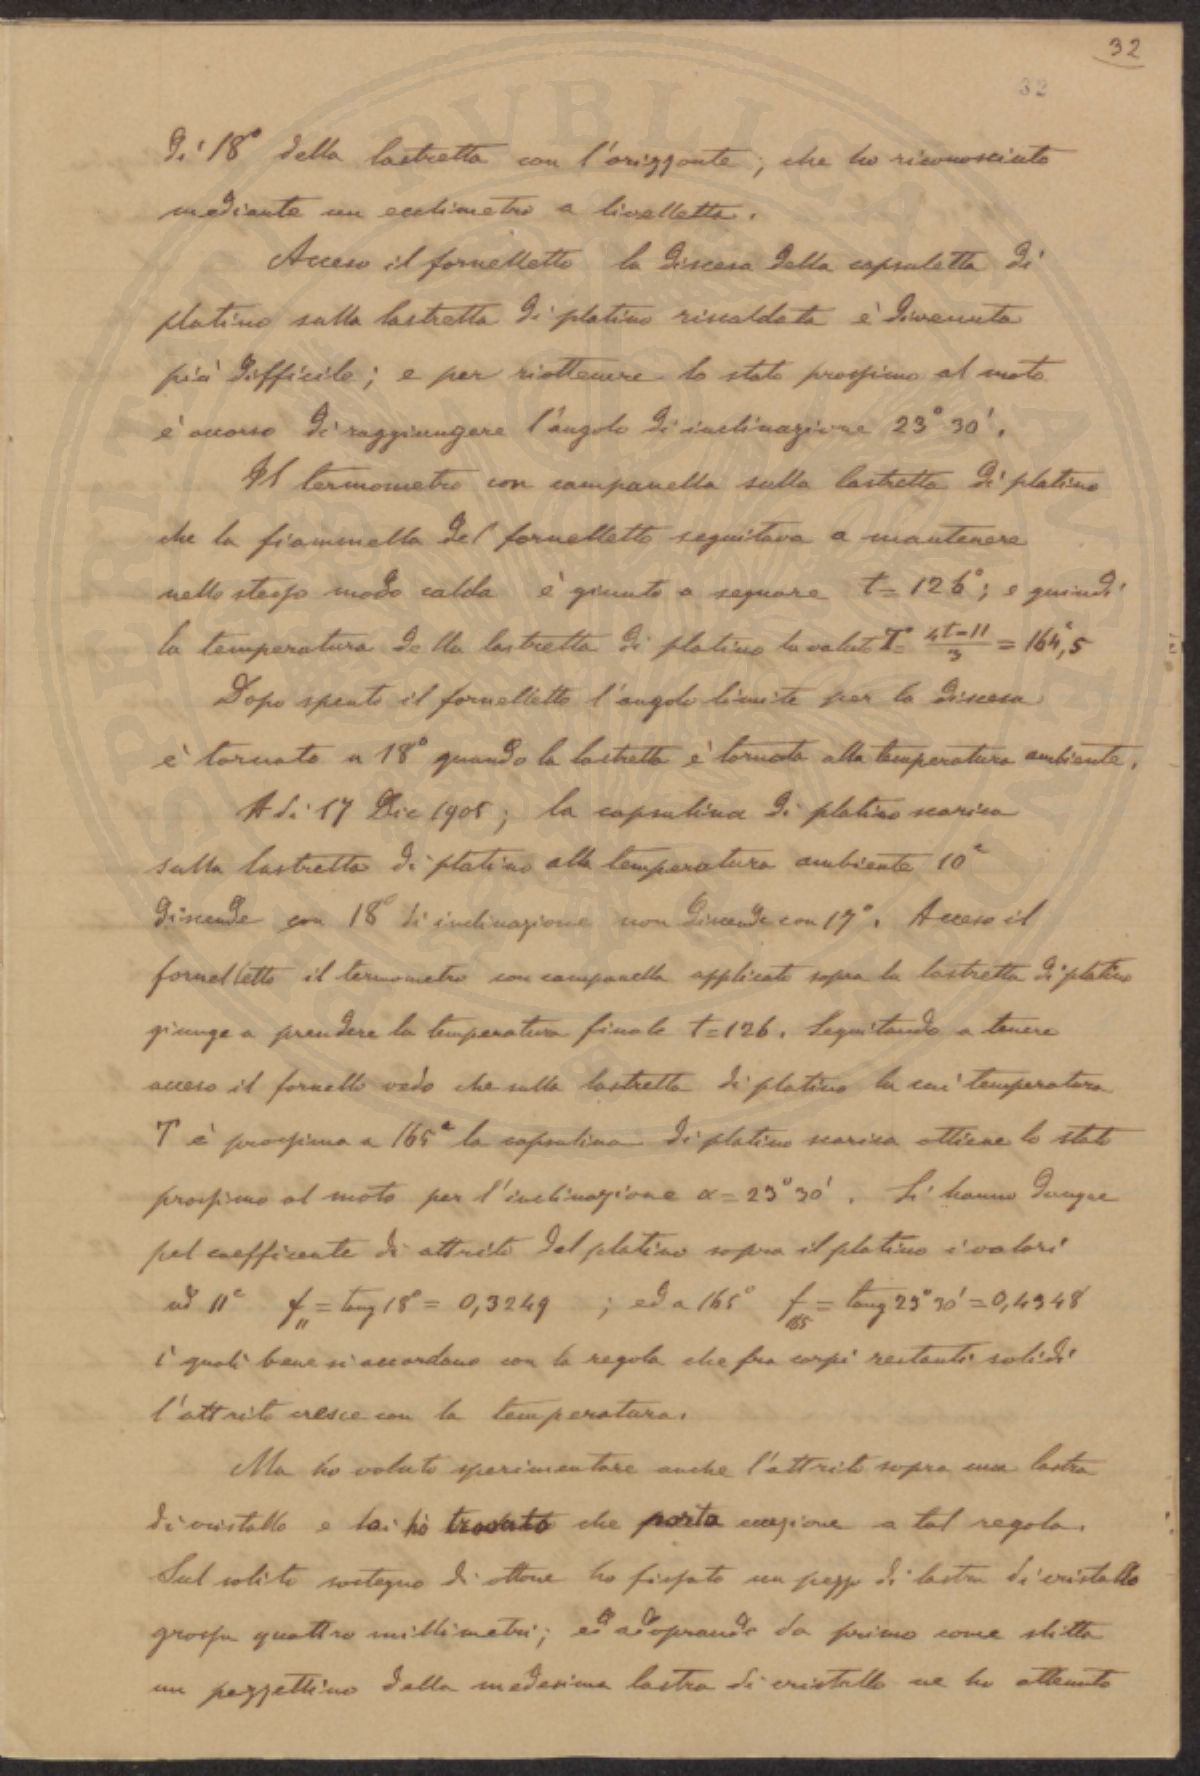 32
32
di 18° della lastretta con l'orizzonte; che ho riconosciuto
mediante un eclimetro a livelletta.
Acceso il fornelletto la discesa della capsuletta di
platino sulla lastretta di platino riscaldata è divenuta
più difficile; e per riottenere lo stato prossimo al moto
è occorso di raggiungere l'angolo di inclinazione 23° 30'.
Il termometro con campanella sulla lastretta di platino
che la fiammella del fornelletto seguitava a mantenere
nello stesso modo calda è giunto a segnare t = 126°; e quindi
la temperatura della lastretta di platino la valuto T = 4t-11/3 = 164°,5
Dopo spento il fornelletto l'angolo limite per la discesa
è tornato a 18° quando la lastretta è tornata alla temperatura ambiente.
A di 17 Dic 1905; la capsulina di platino scarica
sulla lastretta di platino alla temperatura ambiente 10°
discende con 18° di inclinazione non discende con 17°. Acceso il
fornelletto il termometro con campanella applicato sopra la lastretta di platino
giunge a prendere la temperatura finale t=126. Seguitando a tenere
acceso il fornello vedo che sulla lastretta di platino la cui temperatura
T è prossima a 165° la capsulina di platino scarica ottiene lo stato
prossimo al moto per l'inclinazione α = 23° 30'. Si hanno dunque
pel coefficente di attrito del platino sopra il platino i valori
ad 11° f11 = tang 18° = 0,3249 ; ed a 165° f165 = tang 23° 30' = 0,4348
i quali bene si accordano con la regola che fra corpi restanti solidi
l'attrito cresce con la temperatura.
Ma ho voluto sperimentare anche l'attrito sopra una lastra
di cristallo e ho trovato che porta eccezione a tal regola.
Sul solito sostegno di ottone ho fissato un pezzo di lastra di cristallo
grossa quattro millimetri; ed adoprando da primo come slitta
un pezzettino della medesima lastra di cristallo ne ho ottenuto